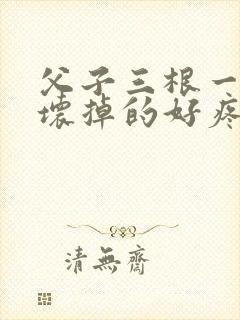 父子三根一
壞掉的好疼
清無齋